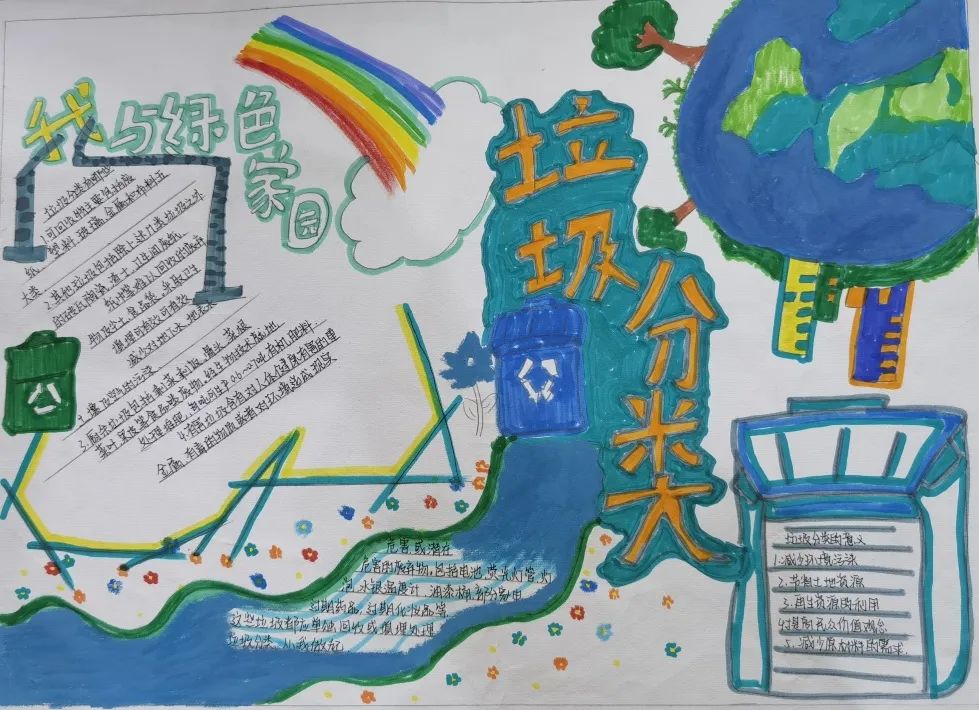 我与绿色家园
垃圾分类
垃圾分类有哪些
1、可回收物主要包括废
纸、塑料、玻璃、金属和布料五
大类。
2、其他垃圾包括除上述几类垃圾之外
的砖瓦陶瓷、渣土、卫生间废纸、
纸巾等难以回收的废弃
物及尘土、食品袋,采取卫生
填埋可有效
减少对地下水、地表
3、厨余垃圾包括剩菜剩饭、骨头、菜根
菜叶、果皮等食品类废物,经生物技术就地
处理堆肥,每吨可生产0.6~0.7吨有机肥料
4、有害垃圾含有对人体健康有害的重
金属、有毒的物质或者对环境造成现实
危害或潜在
危害的废弃物,包括电池、荧光灯管、灯
泡、水银温度计、油漆桶、部分家电
过期药品、过期化妆品等
这些垃圾都应单独回收或填埋处理
垃圾分类,从我做起
垃圾分类的意义
1.减少环境污染
2.节省土地资源
3.再生资源的利用
4.提高民众价值观念
5.减少原材料的需求.